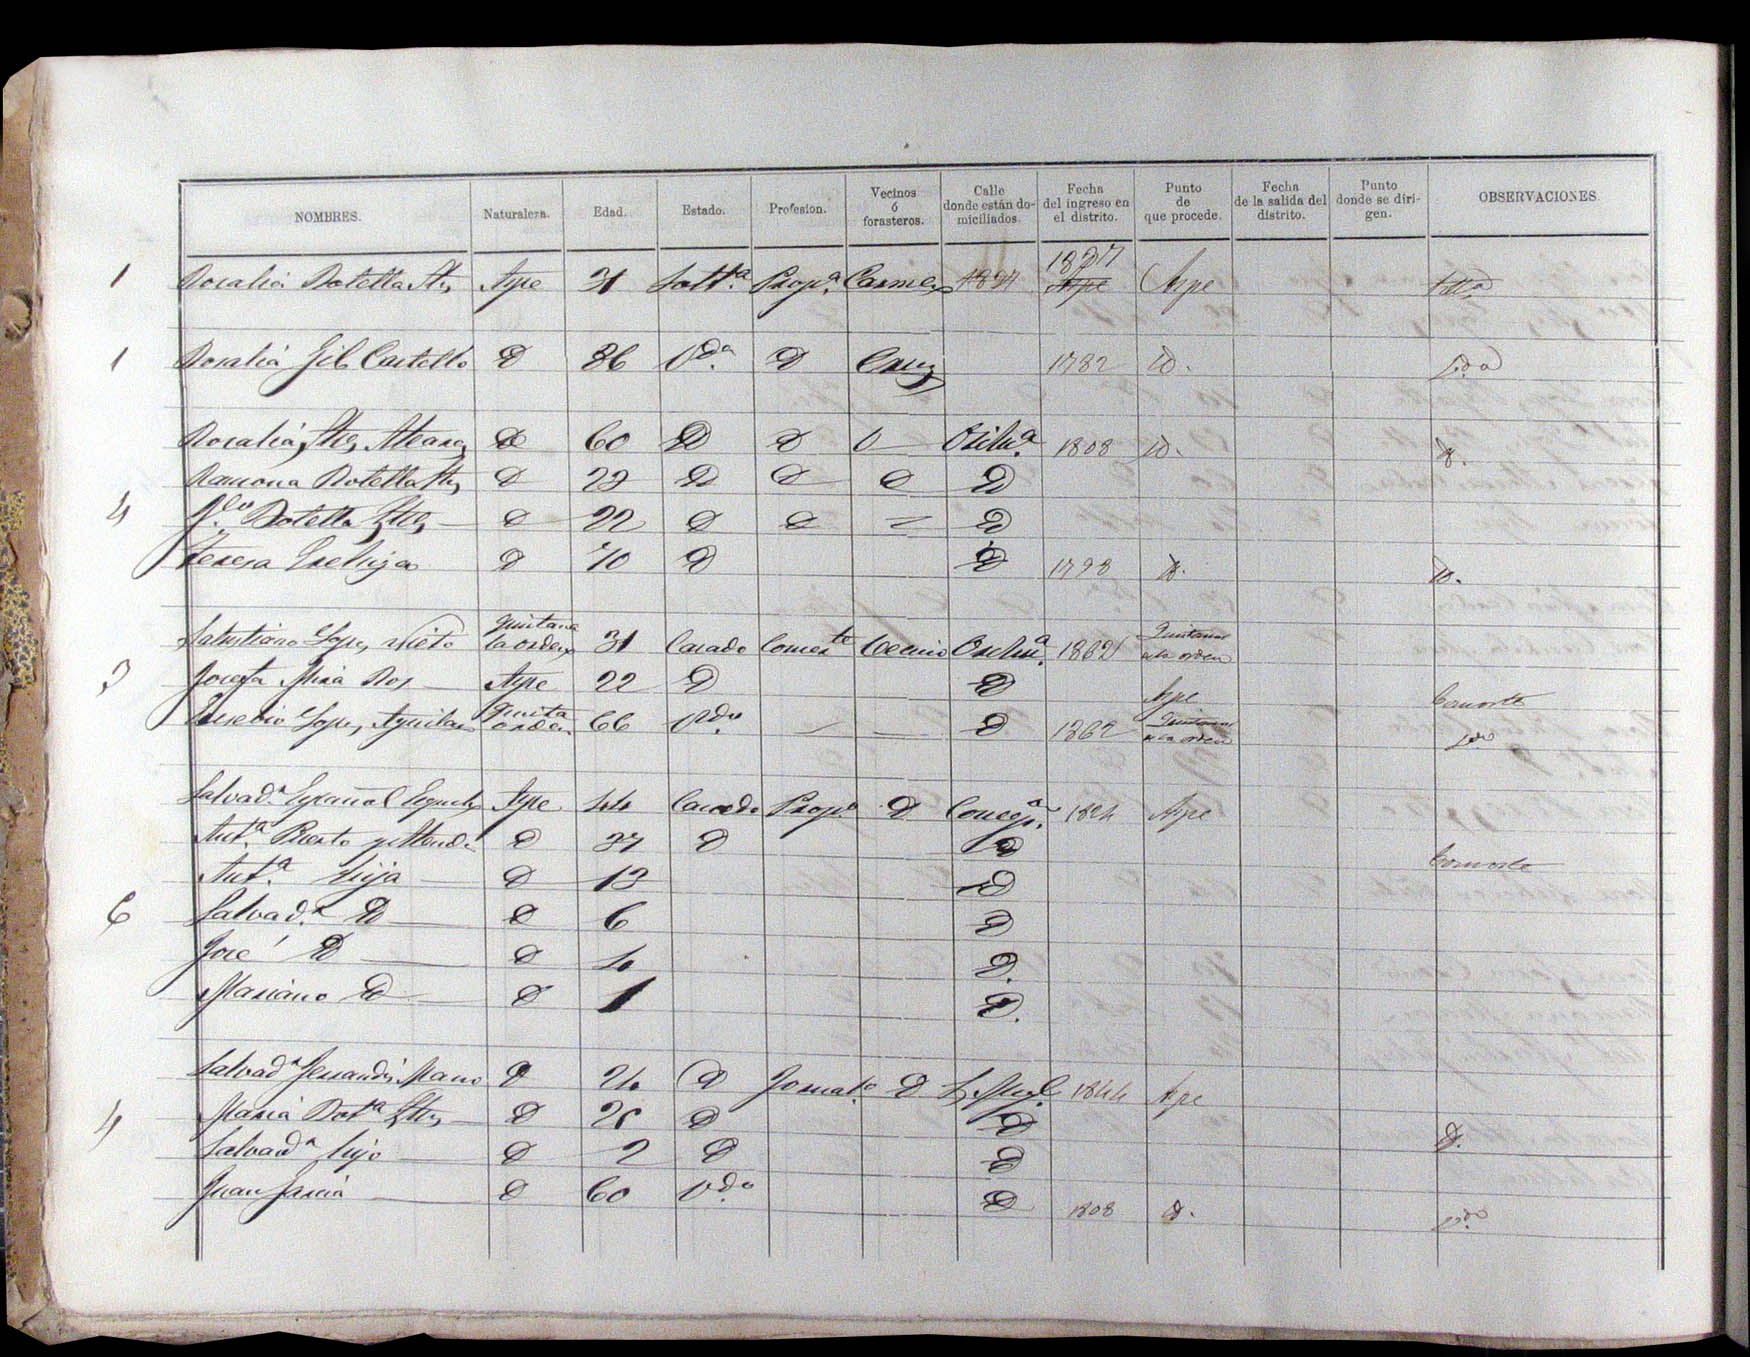 NOMBRES. Naturaleza. Edad. Estado. Profesion. Vecinos ó forasteros. Calle donde están domiciliados. Fecha del ingreso en el distrito. Punto de que procede. Fecha de la salida del distrito. Punto donde se dirigen. OBSERVACIONES
1 Rosalia Botella Aspe 31 Solt.ª Prop.ª Carmen 1827 Aspe
1 Rosalia Gil Castelló D 86 V.da D Cruz 1782 id. V.da
Rosalia D 60 D D Orihu.ª 1808 id. D.
Ramona Botella D 29 D D D D
4 Botella D 22 D D D
Teresa D 70 D D 1798 D. id.
Lopez Nieto Quintana la orden 31 Casado Comer.te Vecino Orihu.ª 1862 Quintana de la orden
3 Josefa Mira Aspe 22 D D Aspe Consorte
Eusebio Lopez Quinta orden 66 V.do D 1862 Quintana de la orden V.do
Salvad.r Español Aspe 44 Casado Prop.o D Concep.ª 1824 Aspe
Ant.ª D 37 D D Consorte
Ant.ª hija D 13 D
6 Salvad.r D D 6 D
José D D 4 D.
Mariano D D 1 D.
Salvad.r D 24 D Jornal.o D 1844 Aspe
4 Maria Bot.ª D 25 D D D.
Salvad.r hijo D 2 D D
Juan Garcia D 60 V.do D 1808 id. V.do